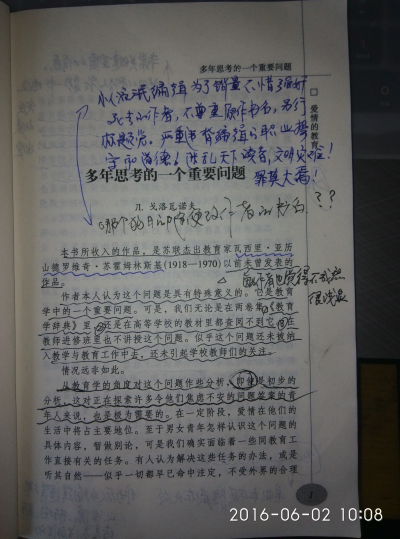 多年思考的一个重要问题
小流氓编辑为了销量不惜强奸
死去作者，不尊重原作书名，另行
标题党。严重违背编辑的职业操
守和道德！
罪莫大焉！
□ 爱情的教育
多年思考的一个重要问题
Л. 戈洛瓦诺夫
？？
本书所收入的作品，是苏联杰出教育家瓦西里·亚历
山德罗维奇·苏霍姆林斯基(1918—1970)以前未曾发表的
作品。
作者本人认为这个问题是具有特殊意义的。也是教育
学中的一个重要问题。可是，我们无论是在两卷集《教育
学辞典》里，还是在高等学校的教材里都查阅不到它，在
教师进修班里也不讲授这个问题。似乎这个问题还未被纳
入教学与教育工作中去，还未引起学校教师们的关注。
情况远非如此。
从教育学的角度对这个问题作些分析，即使是初步的
分析，这对正在探索许多令他们焦虑不安的问题答案的青
年人来说，也是极为需要的。在一定阶段，爱情在他们的
生活中将占主要地位。至于男女青年怎样认识这个问题的
具体内容，暂做别论，可是我们确实面临着一些同教育工
作直接有关的任务。有人认为解决这些任务的办法，或是
听其自然——似乎一切都早已命中注定，不受外界的合理
1
2016-06-02 10:08